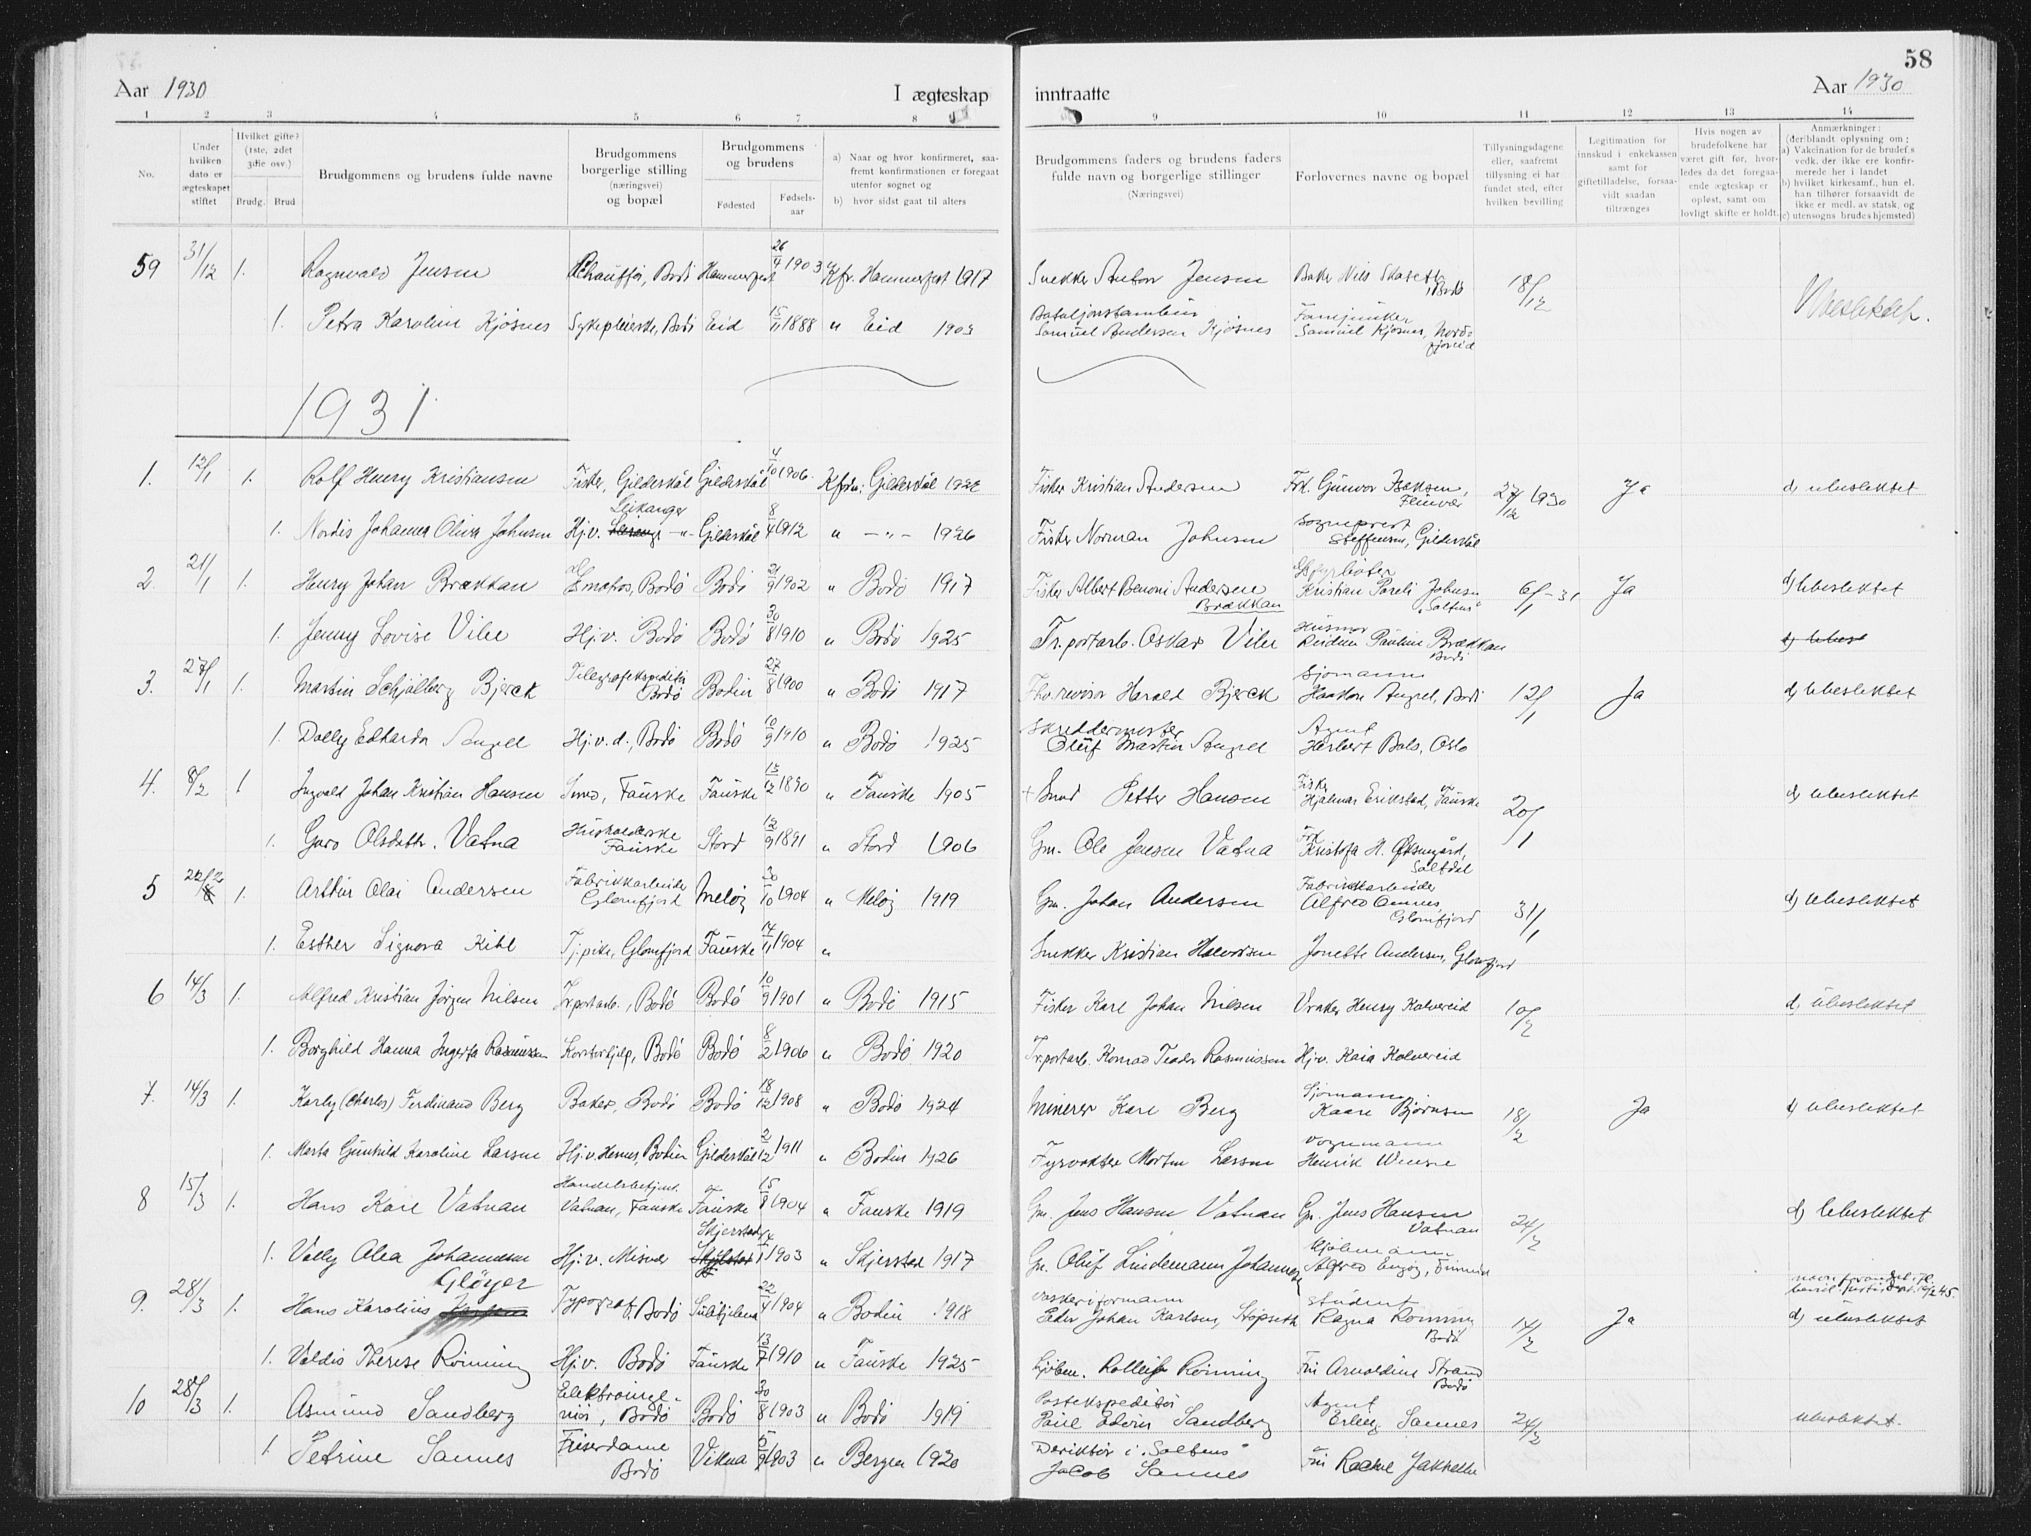 58
Aar 1930
I ægteskap
inntraatte
Aar 1930
1 2 3 4 5 6 7 8 9 10 11 12 13 14
No.
Under hvilken dato er ægteskapet stiftet
Hvilket gifte? (1ste, 2det 3die osv.)
Brudg. Brud
Brudgommens og brudens fulde navne
Brudgommens borgerlige stilling (næringsvei) og bopæl
Brudgommens og brudens
Fødested
Fødsels-aar
a) Naar og hvor konfirmeret, saa-fremt konfirmationen er foregaat utenfor sognet og
b) hvor sidst gaat til alters
Brudgommens faders og brudens faders fulde navn og borgerlige stillinger
(Næringsvei)
Forlovernes navne og bopæl
Tillysningsdagene eller, saafremt tillysning ei har fundet sted, efter hvilken bevilling
Legitimation for innskud i enkekassen samt for giftetilladelse, forsaa-vidt saadan tiltrænges
Hvis nogen av brudefolkene har været gift før, hvor-ledes da det foregaa-ende ægteskap er opløst, samt om lovligt skifte er holdt.
Anmærkninger: (deriblandt oplysning om:
a) Vakcination for de brudef.s vedk. der ikke ere konfir-merede her i landet
b) hvilket kirkesamf., hun el. han tilhører forsaavidt de ikke er medl. av statsk. og
c) utensogns brudes hjemsted)
59 31/12 1. Ragnvald Jensen Chauffør, Bodø Hammerfest 26/4 1903 Kfr. Hammerfest 1917 Snekker Anton Jensen Baker Nils Skaset, Bodø 18/12 Ubeslektet.
1. Petra Karoline Kjøsnes Sykepleierske, Bodø Eid 15/11 1888 " Eid 1903 Samuel Andersen Kjøsnes Fanejunker Samuel Kjøsnes, Nordfjordeid
1931
1. 12/1 1. Rolf Henry Kristiansen Fisker, Gildeskål Gildeskål 4/10 1906 Kfrm: Gildeskål 1922 Fisker Kristian Andersen Frk. Gunvor Isaksen, Fleinvær 27/12 1930 Ja d, ubeslektet
1. Nordis Johanna Oliva Johnsen Hj.v. Leikanger -"- Gildeskål 8/4 1912 " -"- 1926 Fisker Norman Johnsen Sogneprest Steffensen, Gildeskål
2. 21/1 1. Henry Johan Brækkan Matros, Bodø Bodø 21/9 1902 " Bodø 1917 Fisker Albert Benoni Andersen Brækkan Fyrbøter Kristian Pareli Johnsen "Saltens" 6/1-31 Ja d, Ubeslektet
1. Jenny Lovise Vibe Hj.v. Bodø Bodø 30/8 1910 " Bodø 1925 Tr.portarb. Oskar Vibe Husmor Pauline Brækkan Bodø
3. 27/1 1. Martin Schjølberg Bjerck Telegrafekspeditør Bodø Bodin 27/8 1900 " Bodø 1917 Harald Bjerck Sjømann Haakon Angel, Bodø 12/1 Ja d, Ubeslektet
1. Dolly Edharda Angell Hj.v.d., Bodø Bodø 10/9 1910 " Bodø 1925 Skreddermester Oluf Martin Angell Agent Herbert Bals, Oslo
4. 8/2 1 Ingvald Johan Kristian Hansen Smed, Fauske Fauske 15/12 1890 " Fauske 1905 + Smed Petter Hansen Fisker Hjalmar Erikstad, Fauske 20/1 d, Ubeslektet
1. Guro Olsdattr. Vatna Husholderske Fauske Stord 12/9 1891 " Stord 1906 Gm. Ole Jensen Vatna Frk. Kristofa H. Øksengård, Saltdal
5 22/2 1. Arthur Olai Andersen Fabrikkarbeider Glomfjord Meløy 30/10 1904 " Meløy 1919 Gm. Johan Andersen Fabrikkarbeider Alfred Onnes Glomfjord 31/1 d, Ubeslektet
1. Esther Signora Kihl Tj.pike, Glomfjord Fauske 17/11 1904 " Snekker Kristian Halvorsen Jonette Andersen, Glomfjord
6 14/3 1. Alfred Kristian Jørgen Nilsen Tr.portarb., Bodø Bodø 10/9 1901 " Bodø 1915 Fisker Karl Johan Nilsen Vraker Henry Kalvereid 10/2 d, Ubeslektet
1. Borghild Hanna Ingerfa Rasmussen Kontorhjelp, Bodø Bodø 8/2 1906 " Bodø 1920 Tr.portarb. Konrad Teodor Rasmussen Hj.v. Kaia Kalvereid
7. 14/3 1. Karly (Charles) Ferdinand Berg Baker, Bodø Bodø 18/12 1908 " Bodø 1924 Minerer Karl Berg Sjømann Kaare Bjørnsen 18/2 Ja d, Ubeslektet
1. Marta Gunhild Karoline Larsen Hj.v. Hernes, Bodin Gildeskål 2/12 1911 " Bodin 1926 Fyrvokter Morten Larsen Vognmann Henrik Wensne
8 15/3 1. Hans Karl Vatnan Handelsbetjent. Vatnan, Fauske Fauske 15/8 1904 " Fauske 1919 Gm. Jens Hansen Vatnan Gm. Jens Hansen Vatnan 24/2 d, Ubeslektet
1. Volly Alea Johannesen Hj.v. Misvær Skjerstad 1903 " Skjerstad 1917 Gm. Oluf Lindemann Johannesen Alfred Engøy, Finneid
9. 28/3 1. Hans Karolius Gløyer Typograf, Bodø Sulitjelma 22/4 1904 " Bodin 1918 Vaskeriformann Peder Johan Karlsen, Støpseth Student Ragna Rønning Bodø 14/2 Ja d, Ubeslektet
1. Valdis Therese Rønning Hj.v. Bodø Fauske 13/7 1910 " Fauske 1925 Kjøbm. Rolleif Rønning Fru Arnoldine Strand Bodø
10 28/3 1. Asmund Sandberg Elektroingeniør, Bodø Bodø 30/8 1903 " Bodø 1919 Postekspeditør Paul Edvin Sandberg Agent Erling Sannes 24/2 Ubeslektet.
1. Petrine Sannes Friserdame Bodø Vikna 5/9 1903 " Bergen 1920 Direktør i "Saltens" Jacob Sannes Fru Rachel Jakhelln